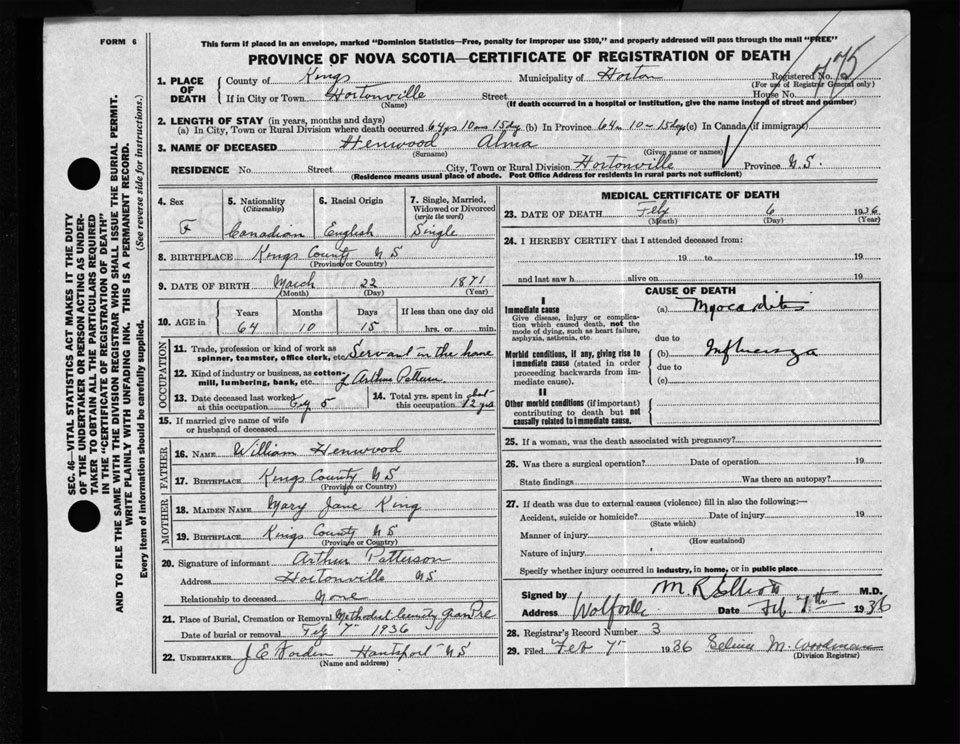 FORM 6
This form if placed in an envelope, marked "Dominion Statistics—Free, penalty for improper use $300," and properly addressed will pass through the mail "FREE"
PROVINCE OF NOVA SCOTIA—CERTIFICATE OF REGISTRATION OF DEATH
1. PLACE OF DEATH County of Kings Municipality of Horton Registered No.
(For use of Registrar General only)
If in City or Town Hortonville Street House No.
(Name) (If death occurred in a hospital or institution, give the name instead of street and number)
2. LENGTH OF STAY (in years, months and days)
(a) In City, Town or Rural Division where death occurred 64 yrs 10 ms 15 dys (b) In Province 64 10 15 dys (c) In Canada (if immigrant)
3. NAME OF DECEASED Henwood Alma
(Surname) (Given name or names)
RESIDENCE No. Street City, Town or Rural Division Hortonville Province N.S.
(Residence means usual place of abode. Post Office Address for residents in rural parts not sufficient)
4. Sex F
5. Nationality (Citizenship) Canadian
6. Racial Origin English
7. Single, Married, Widowed or Divorced (write the word) Single
8. BIRTHPLACE Kings County N S
(Province or Country)
9. DATE OF BIRTH March 22 1871
(Month) (Day) (Year)
10. AGE in Years Months Days If less than one day old
64 10 15 hrs. or min.
OCCUPATION
11. Trade, profession or kind of work as spinner, teamster, office clerk, etc. Servant in the home
12. Kind of industry or business, as cotton-mill, lumbering, bank, etc. J Arthur Patterson
13. Date deceased last worked at this occupation 5
14. Total yrs. spent in this occupation 12 yrs
15. If married give name of wife or husband of deceased
FATHER
16. NAME William Henwood
17. BIRTHPLACE Kings County N S
(Province or Country)
MOTHER
18. MAIDEN NAME Mary Jane King
19. BIRTHPLACE Kings County N S
(Province or Country)
20. Signature of informant Arthur Patterson
Address Hortonville N S
Relationship to deceased None
21. Place of Burial, Cremation or Removal Methodist Cemetery Grand Pre
Date of burial or removal Feb 7" 1936
22. UNDERTAKER J E Hantsport N S
(Name and address)
MEDICAL CERTIFICATE OF DEATH
23. DATE OF DEATH Feb 6 1936
(Month) (Day) (Year)
24. I HEREBY CERTIFY that I attended deceased from:
19 to 19
and last saw h alive on 19
CAUSE OF DEATH
I
Immediate cause (a) Myocarditis
Give disease, injury or complication which caused death, not the mode of dying, such as heart failure, asphyxia, asthenia, etc.
due to
Morbid conditions, if any, giving rise to immediate cause (stated in order proceeding backwards from immediate cause).
(b) Influenza
due to
(c)
II
Other morbid conditions (if important) contributing to death but not causally related to immediate cause.
25. If a woman, was the death associated with pregnancy?
26. Was there a surgical operation? Date of operation 19
State findings Was there an autopsy?
27. If death was due to external causes (violence) fill in also the following:—
Accident, suicide or homicide? Date of injury 19
(State which)
Manner of injury
(How sustained)
Nature of injury
Specify whether injury occurred in industry, in home, or in public place
Signed by M R Elliott M.D.
Address Wolfville Date Feb 7th 1936
28. Registrar's Record Number 3
29. Filed Feb 7" 1936 M.
(Division Registrar)
SEC. 46—VITAL STATISTICS ACT MAKES IT THE DUTY
OF THE UNDERTAKER OR PERSON ACTING AS UNDERTAKER
TO OBTAIN ALL THE PARTICULARS REQUIRED
IN THE "CERTIFICATE OF REGISTRATION OF DEATH"
AND TO FILE THE SAME WITH THE DIVISION REGISTRAR WHO SHALL ISSUE THE BURIAL PERMIT.
WRITE PLAINLY WITH UNFADING INK. THIS IS A PERMANENT RECORD.
Every item of information should be carefully supplied.
(See reverse side for instructions.)